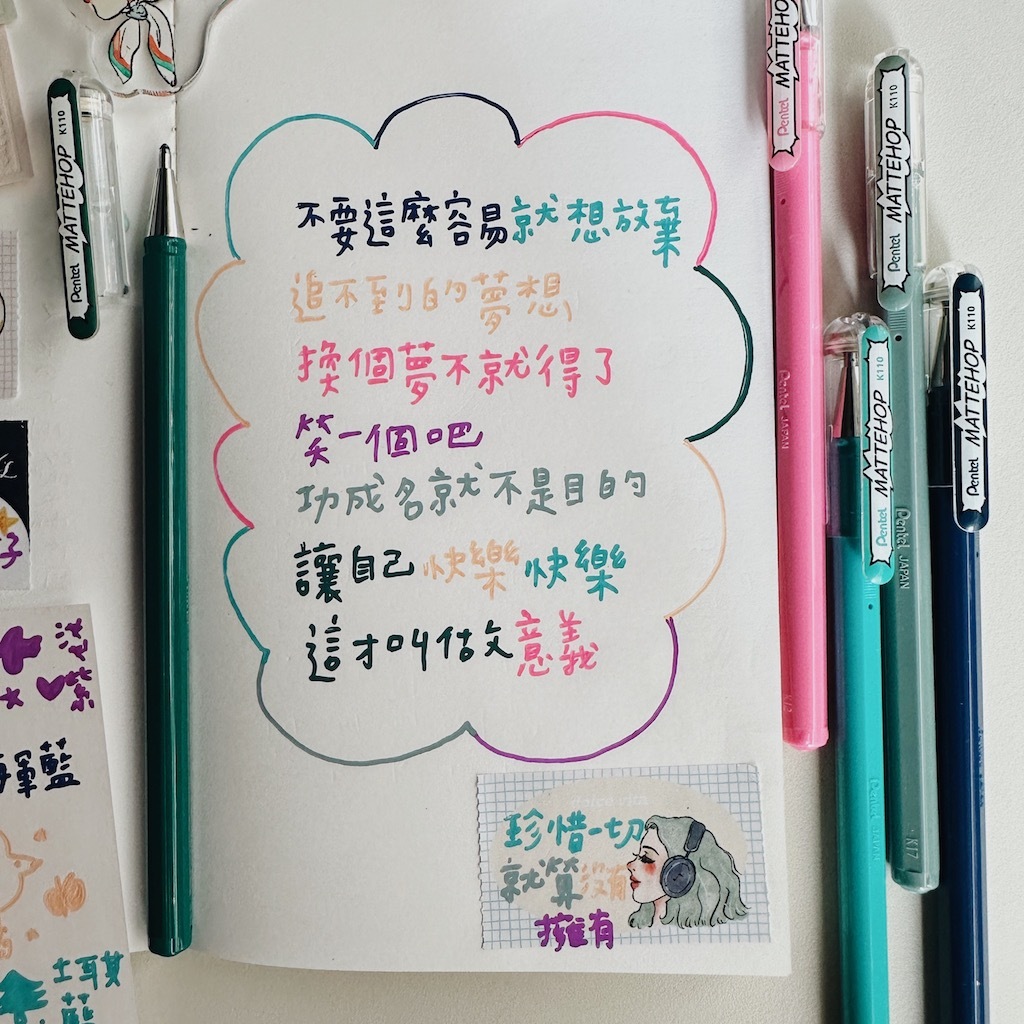 不要這麼容易就想放棄
追不到的夢想
換個夢不就得了
笑一個吧
功成名就不是目的
讓自己快樂快樂
這才叫做文意義
珍惜一切
就算沒有
擁有
Pentel MATTEHOP K110
Pentel MATTEHOP
Pentel MATTEHOP K110
Pentel MATTEHOP K110
Pentel MATTEHOP K110
Pentel JAPAN
Pentel JAPAN
K17
紫
藍
土耳其
藍